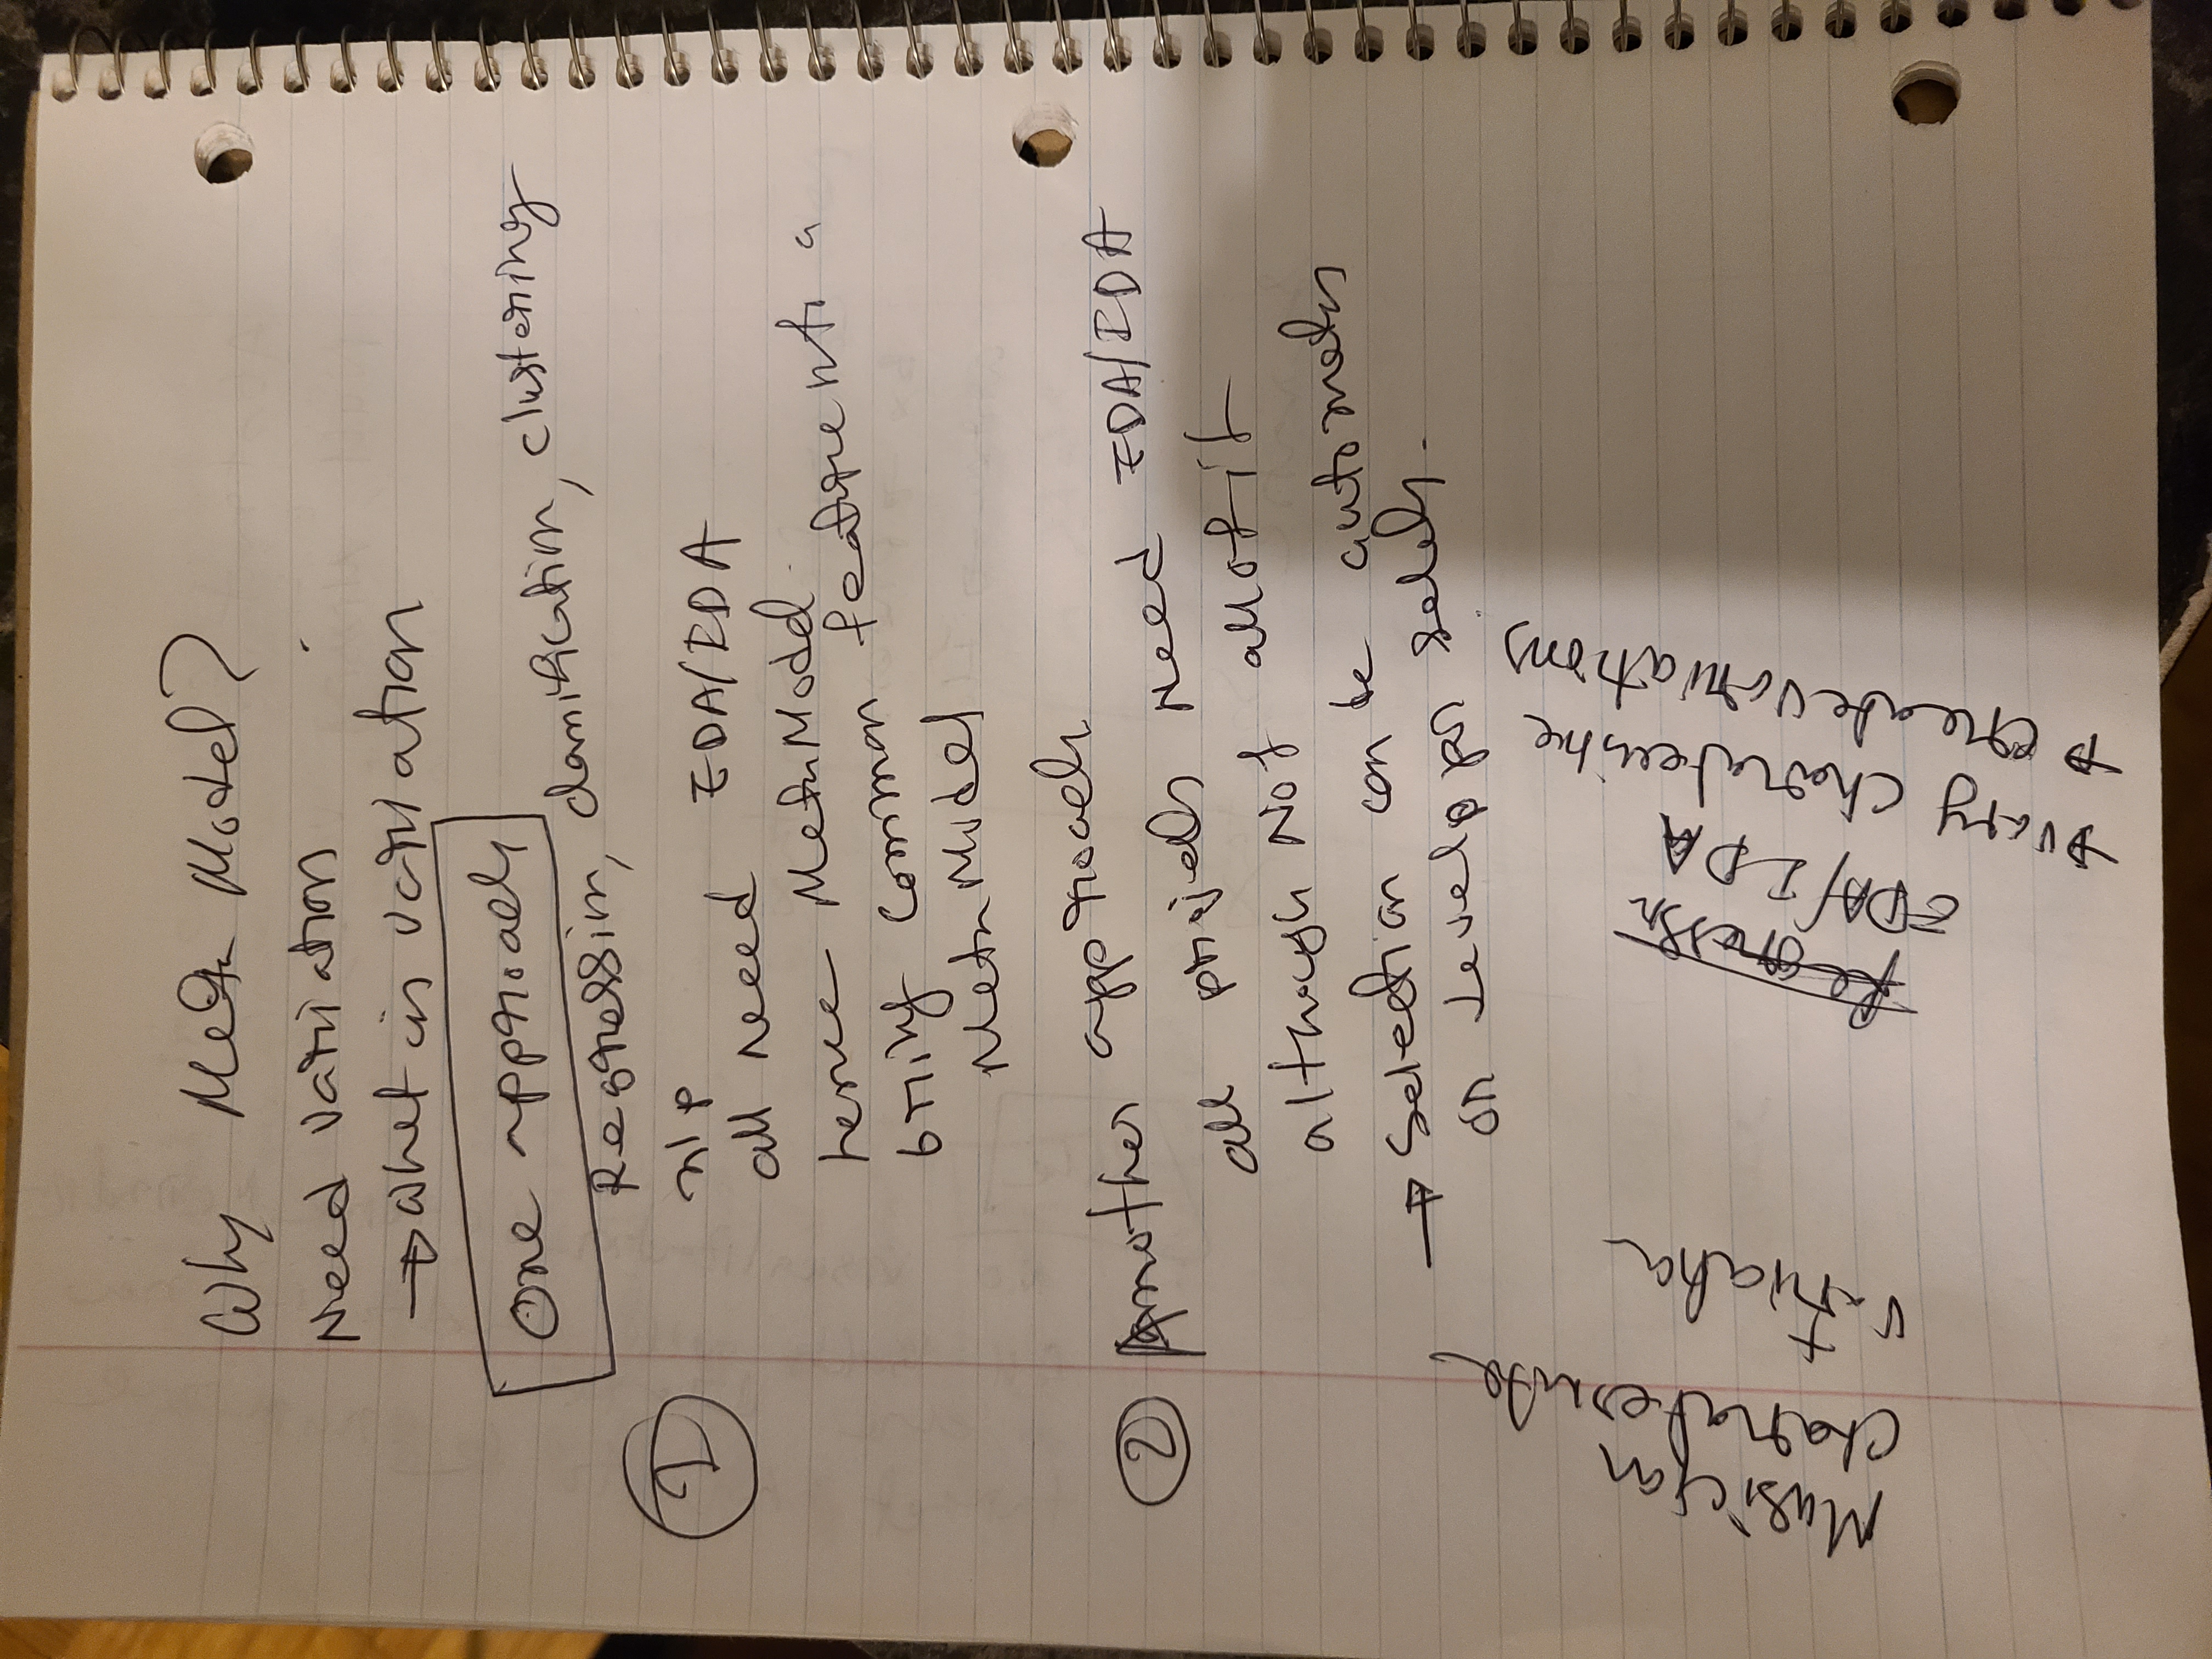 Why Meta Model?
Need variation
→ What is variation
One approach
Regression, classification, clustering
① nlp
all need EDA/IDA
hence MetaModel
bring common feature into a
MetaModel
② Another approach
all projects need EDA/IDA
although Not all of it
→ Selection can be automates
or developper selects.
Musician
variation
Regressn
EDA/IDA
→ vary
→ create variations